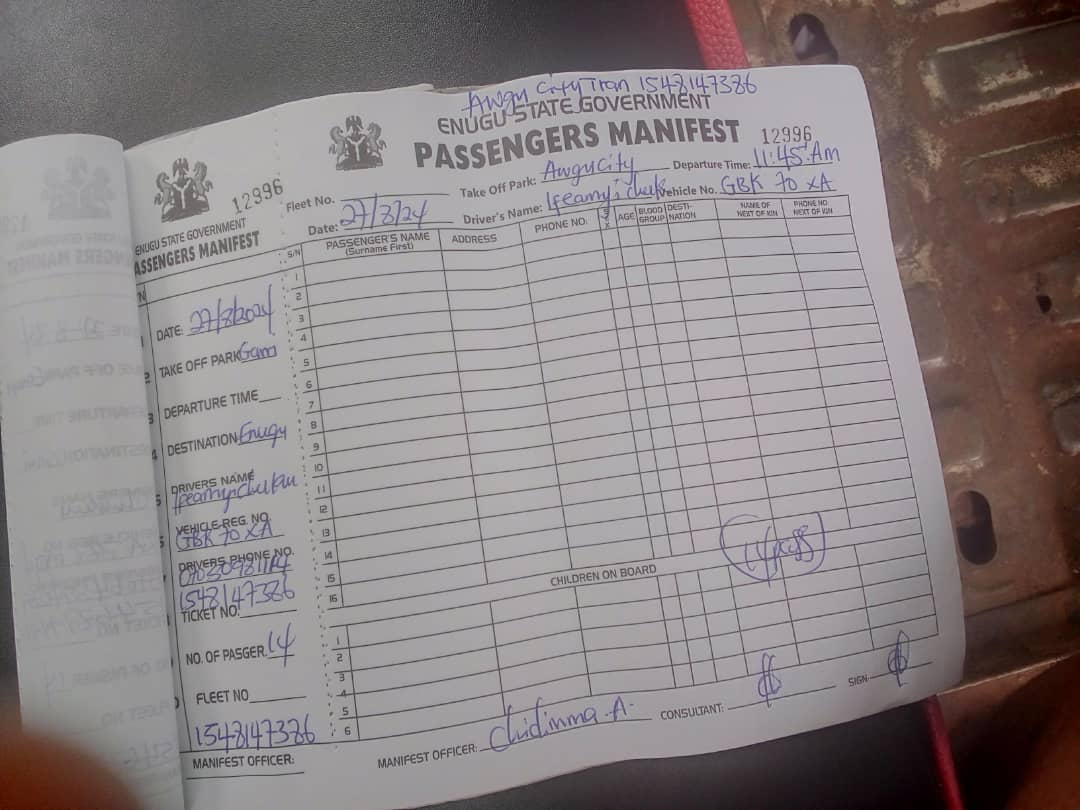 Awgu City Tran 1548147386
ENUGU STATE GOVERNMENT
PASSENGERS MANIFEST 12996
Fleet No. Take Off Park: Awgu City Departure Time: 11:45 Am
Date: 27/8/24 Driver's Name: Ifeanyichukwu Vehicle No. GBK 70 XA
S/N PASSENGER'S NAME (Surname First) ADDRESS PHONE NO. SEX AGE BLOOD GROUP DESTINATION NAME OF NEXT OF KIN PHONE NO. NEXT OF KIN
1
2
3
4
5
6
7
8
9
10
11
12
13
14
15
16
14pass
CHILDREN ON BOARD
1
2
3
4
5
6
MANIFEST OFFICER: Chidinma .A. CONSULTANT: SIGN:
12996
ENUGU STATE GOVERNMENT
PASSENGERS MANIFEST
DATE: 27/8/2024
TAKE OFF PARK Gam
DEPARTURE TIME
DESTINATION Enugu
DRIVERS NAME
Ifeanyichukwu
VEHICLE REG. NO.
GBK 70 XA
DRIVERS PHONE NO.
1548147386
TICKET NO.
NO. OF PASGER. 14
FLEET NO
1548147386
MANIFEST OFFICER: